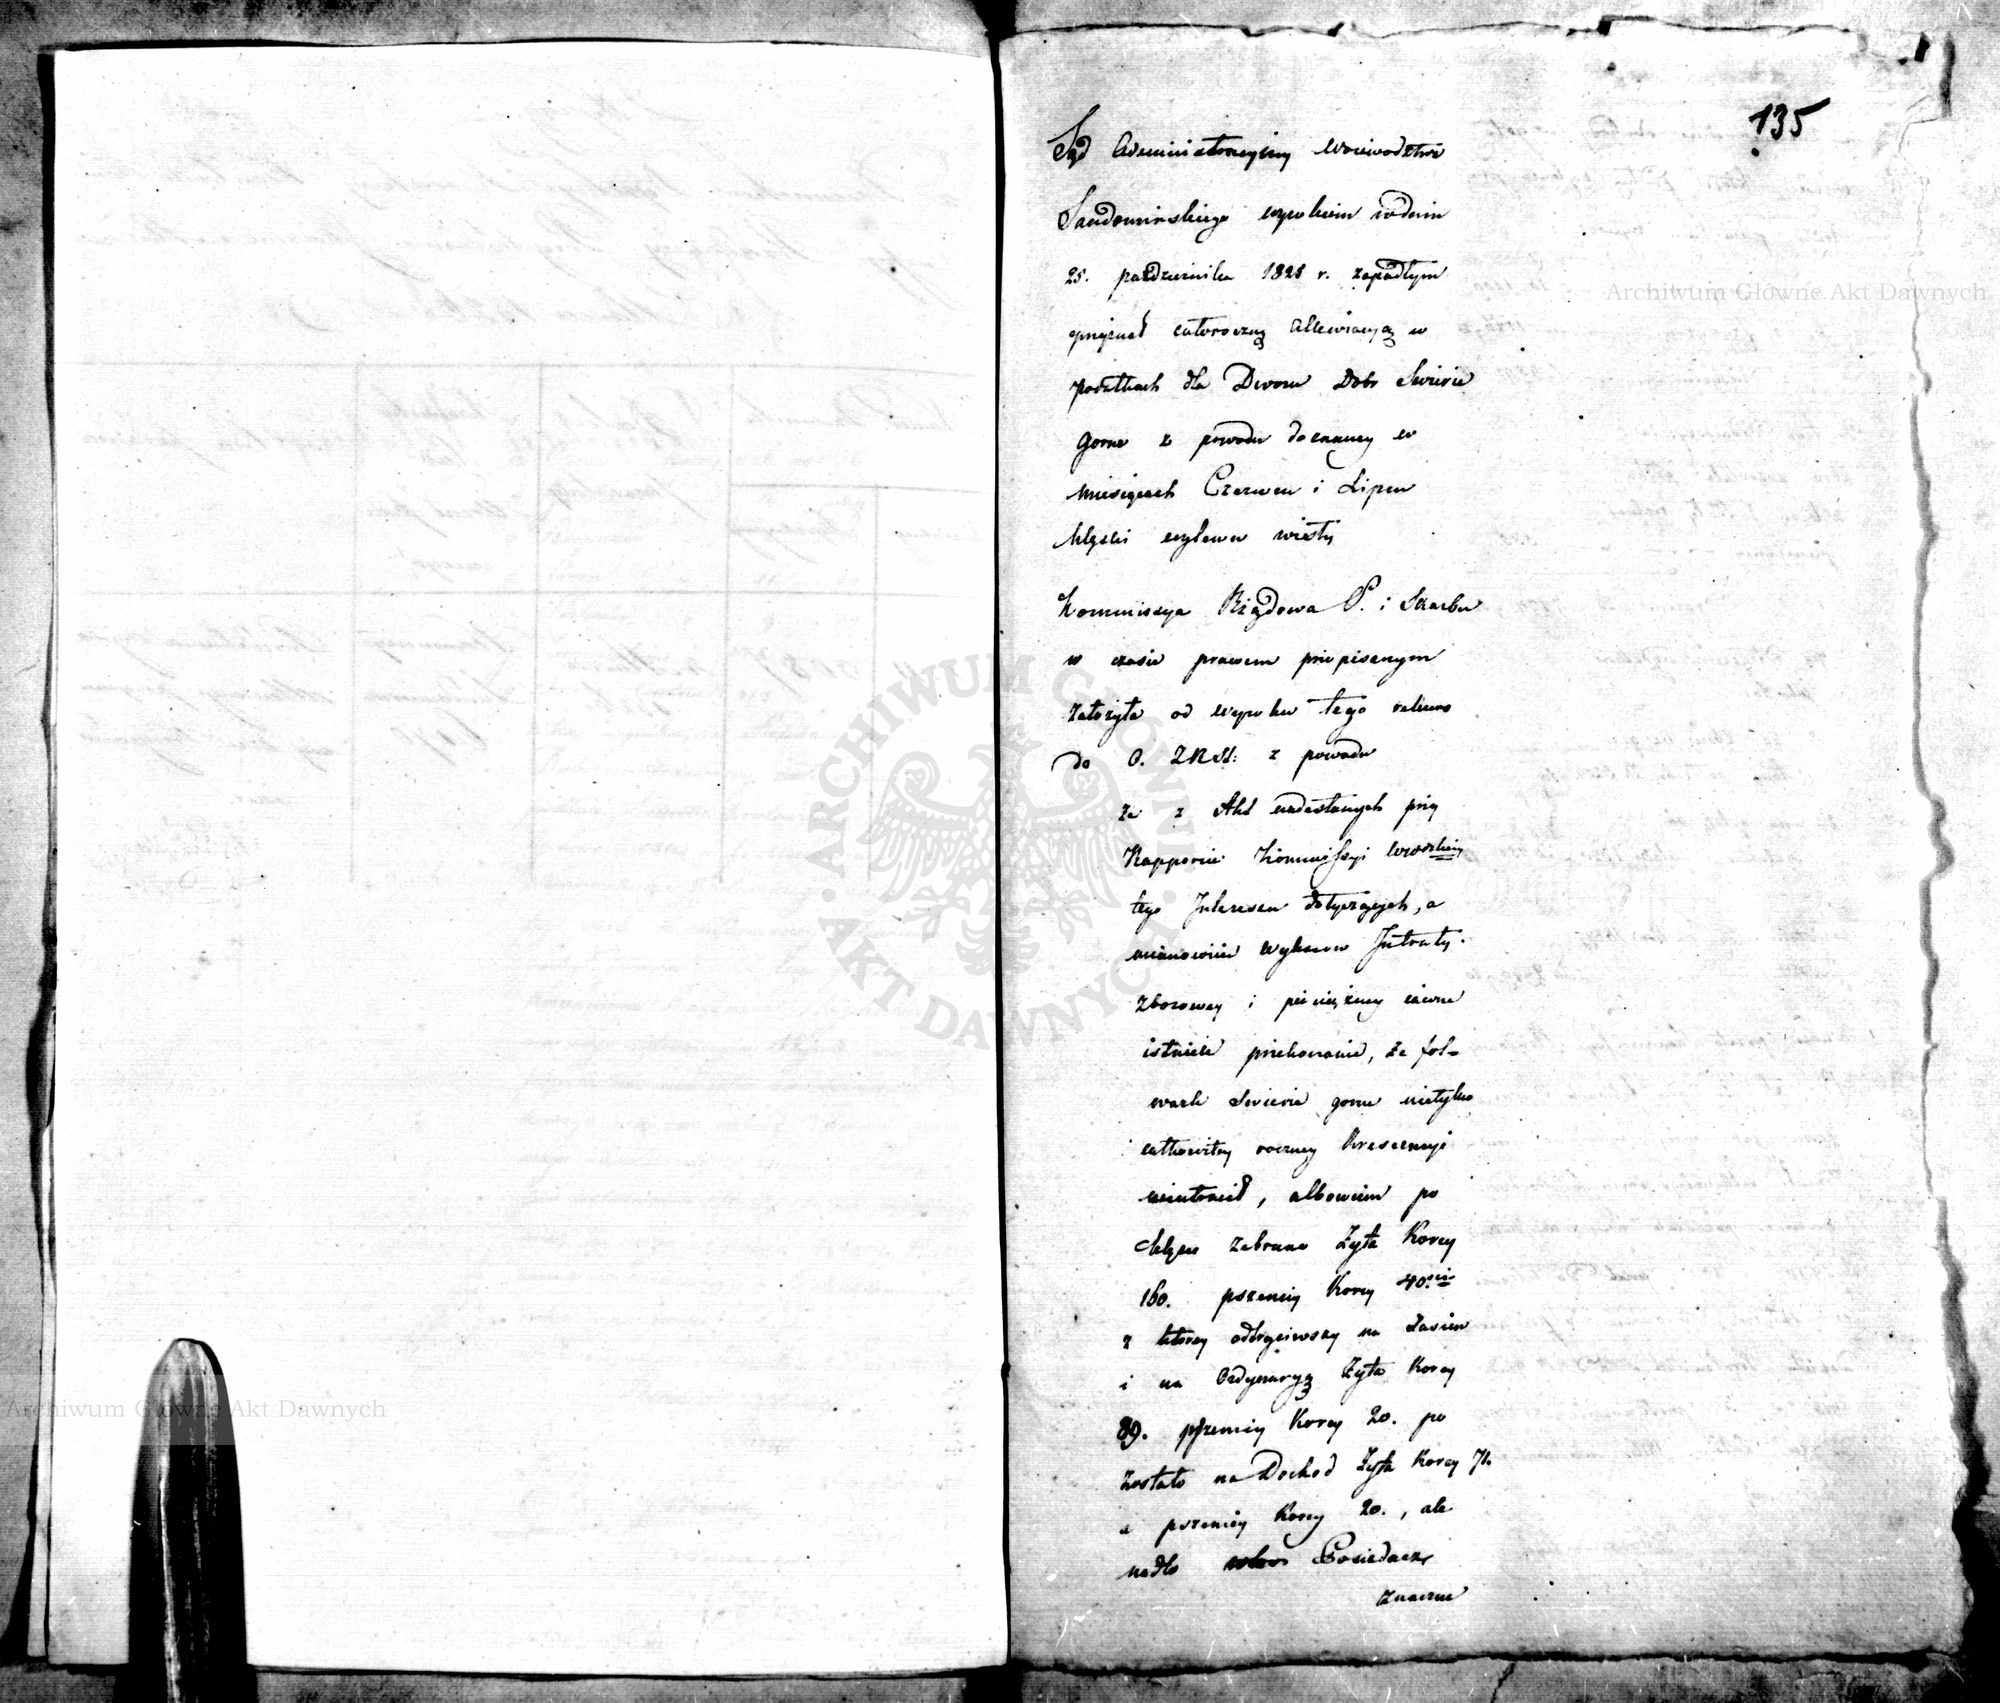 135
Sąd Administracyjny Woiewodztwa
Sandomirskiego wyrokiem w dniu
25. października 1828 r. zapadłym
przyznał całoroczną Allewiacyą w
podatkach dla Dworu Dobr Swierze
Gorne z powodu doznaney w
miesiącach Czerwcu i Lipcu
klęski wylewu Wisły
Kommissya Rządowa P. i Skarbu
w czasie prawem przepisanym
założyła od wyroku tego rekurs
do O. Z R St: z powodu
że z Akt nadesłanych przy
Rapporcie Kommissyi Wdzkiey
tego Interessu dotyczących, a
mianowicie wykazow Intraty
zborowey i pienięzney iawne
istnieie przekonanie, że fol=
wark Swierze gorne nietylko
całkowitey roczney Krescencyi
nieutracił, albowiem po
klęsce zebrano Żyta Korcy
160. pszenicy Korcy 40.
z ktorey odtrąciwszy na Zasiew
i na Ordynaryą Żyta Korcy
89. pszenicy Korcy 20. po
zostało na Dochod Żyta Korcy 71.
a pszenicy Korcy 20., ale
nadto Posiedacz
znaczne
Archiwum Główne Akt Dawnych
Archiwum Główne Akt Dawnych
ARCHIWUM GŁÓWNE AKT DAWNYCH